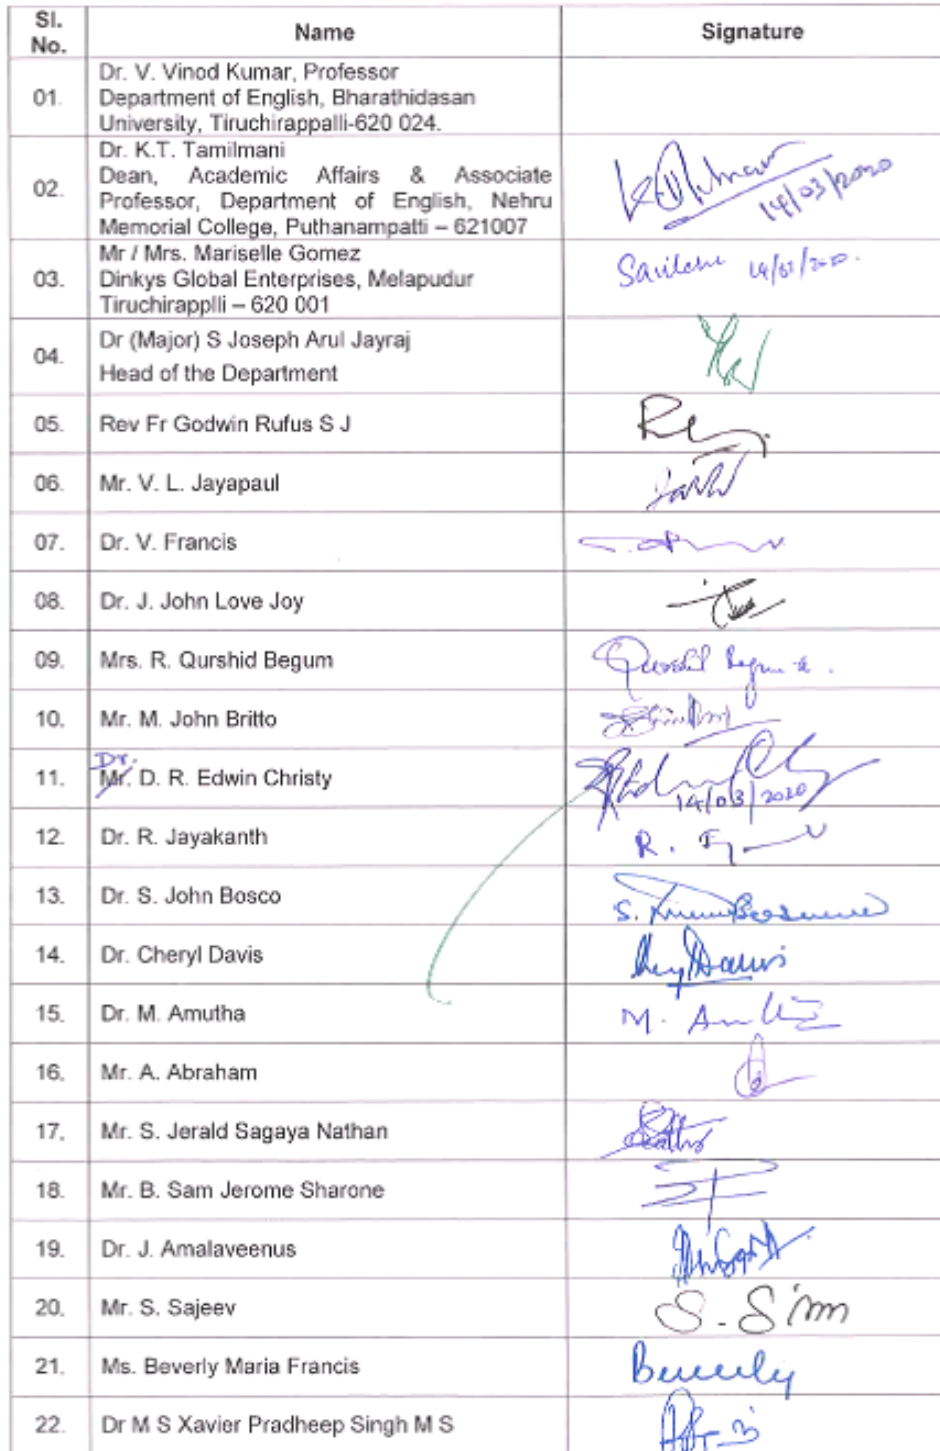 Sl. No. Name Signature
01. Dr. V. Vinod Kumar, Professor
Department of English, Bharathidasan
University, Tiruchirappalli-620 024.
02. Dr. K.T. Tamilmani
Dean, Academic Affairs & Associate
Professor, Department of English, Nehru
Memorial College, Puthanampatti – 621007
14/03/2020
03. Mr / Mrs. Mariselle Gomez
Dinkys Global Enterprises, Melapudur
Tiruchirapplli – 620 001
04. Dr (Major) S Joseph Arul Jayraj
Head of the Department
05. Rev Fr Godwin Rufus S J
06. Mr. V. L. Jayapaul
07. Dr. V. Francis
08. Dr. J. John Love Joy
09. Mrs. R. Qurshid Begum Qurshid Begum
10. Mr. M. John Britto
Dr.
11. Mr. D. R. Edwin Christy
14/03/2020
12. Dr. R. Jayakanth R.
13. Dr. S. John Bosco S.
14. Dr. Cheryl Davis
15. Dr. M. Amutha M.
16. Mr. A. Abraham
17. Mr. S. Jerald Sagaya Nathan
18. Mr. B. Sam Jerome Sharone
19. Dr. J. Amalaveenus
20. Mr. S. Sajeev S.
21. Ms. Beverly Maria Francis Beverly
22. Dr M S Xavier Pradheep Singh M S